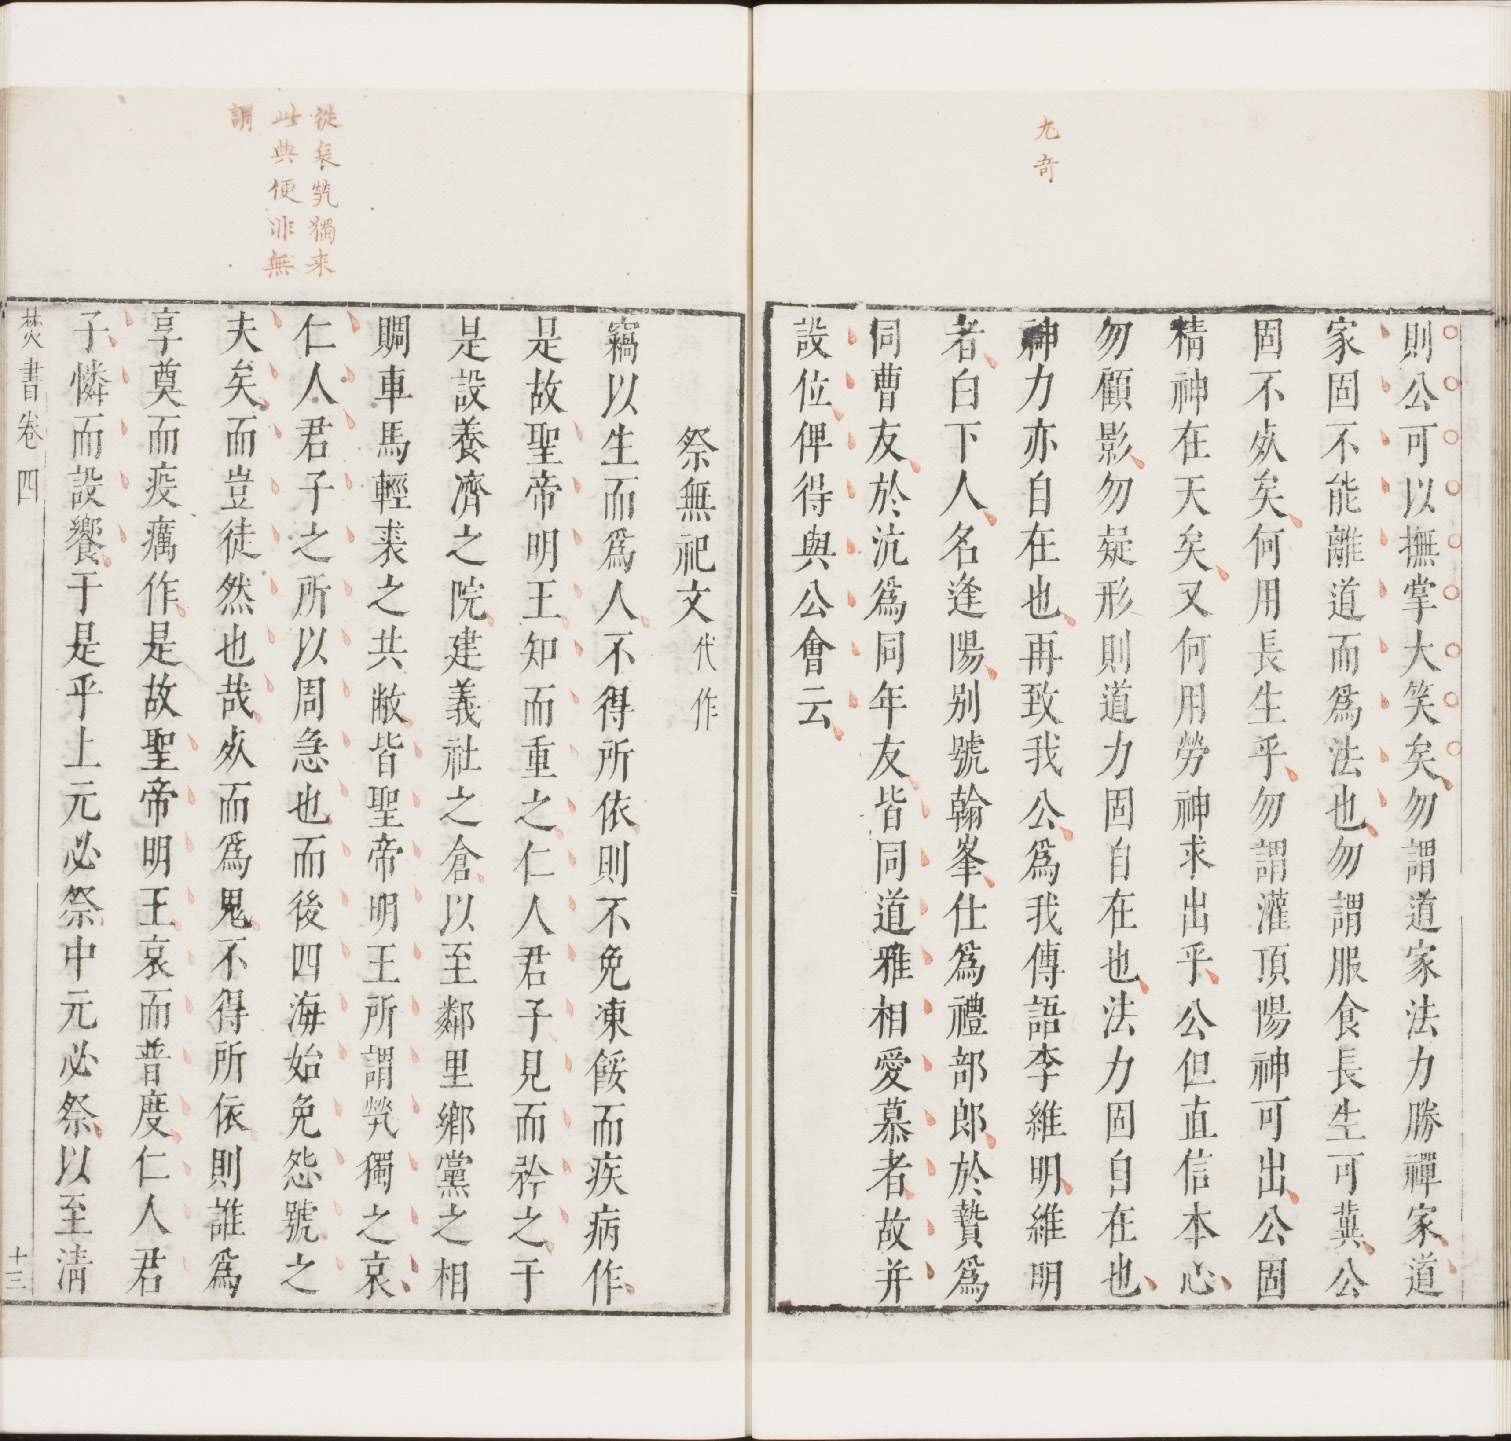 尤奇
則公可以撫掌大笑矣勿謂道家法力勝禪家道
家固不能離道而爲法也勿謂服食長生可兾公
固不㱙矣何用長生乎勿謂灌頂陽神可出公固
精神在天矣又何用勞神求出乎公但直信本心
勿顧影勿疑形則道力固自在也法力固自在也
神力亦自在也再致我公爲我傳語李維明維明
者白下人名逢陽别號翰峯仕爲禮部郎於贄爲
同曹友於沆爲同年友皆同道雅相愛慕者故并
設位俾得與公會云
從哀煢獨來
此典便非無
謂
祭無祀文代作
竊以生而爲人不得所依則不免凍餒而疾病作
是故聖帝明王知而重之仁人君子見而矜之于
是設養濟之院建義社之倉以至鄰里鄉黨之相
賙車馬輕裘之共敝皆聖帝明王所謂煢獨之哀
仁人君子之所以周急也而後四海始免怨號之
夫矣而豈徒然也哉㱙而爲鬼不得所依則誰爲
享奠而疫癘作是故聖帝明王哀而普度仁人君
子憐而設饗于是乎上元必祭中元必祭以至清
焚書卷四
十三